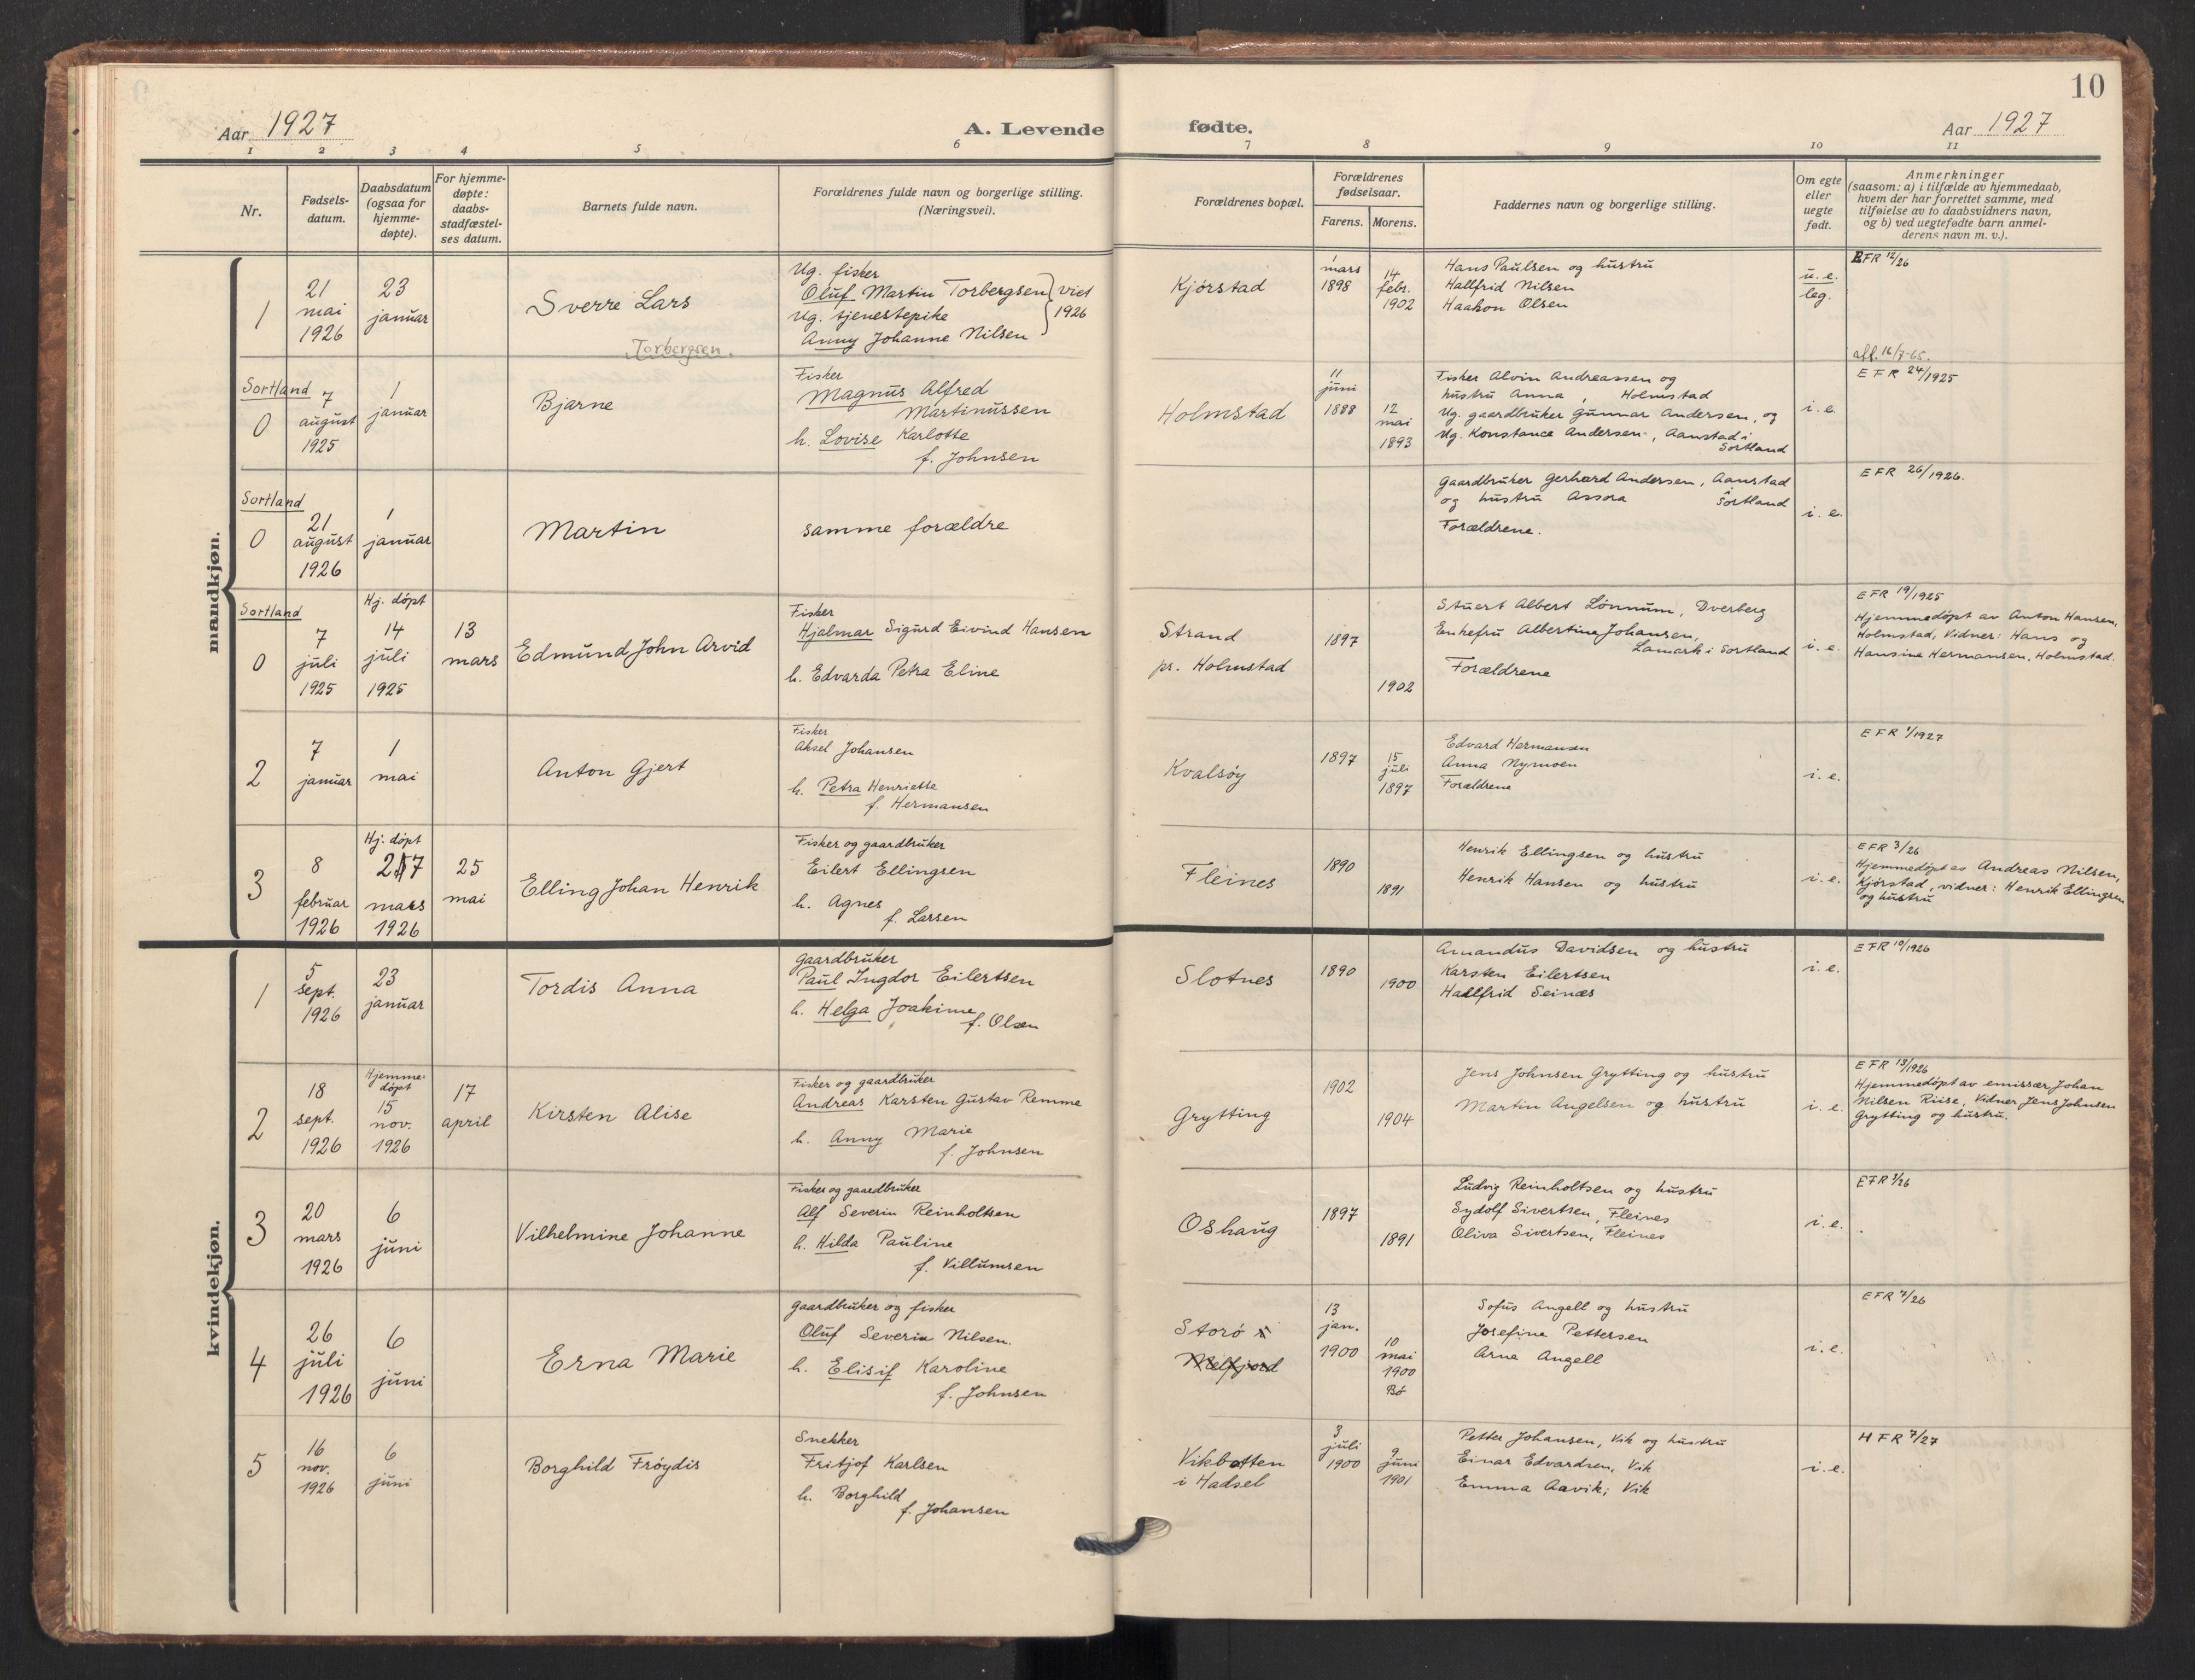 10
Aar 1927
A. Levende
fødte.
Aar 1927
1 2 3 4 5 6 7 8 9 10 11
Nr.
Fødsels-
datum.
Daabsdatum
(ogsaa for
hjemme-
døpte).
For hjemme-
døpte:
daabs-
stadfæstel-
ses datum.
Barnets fulde navn.
Forældrenes fulde navn og borgerlige stilling.
(Næringsvei).
Forældrenes bopæl.
Forældrenes
fødselsaar.
Farens. Morens.
Faddernes navn og borgerlige stilling.
Om egte
eller
uegte
født.
Anmerkninger
(saasom: a) i tilfælde av hjemmedaab,
hvem der har forrettet samme, med
tilføielse av to daabsvidners navn,
og b) ved uegtefødte barn anmel-
derens navn m. v.).
mandkjøn.
1
21
mai
1926
23
januar
Sverre Lars
Torbergsen.
Ug. fisker
Oluf Martin Torbergsen
Ug. tjenestepike
Anny Johanne Nilsen
viet
1926
Kjørstad
1
mars
1898
14
febr.
1902
Hans Paulsen og hustru
Hallfrid Nilsen
Haakon Olsen
u. e.
leg.
EFR 12/26
aff. 16/7-65.
Sortland
0
7
august
1925
1
januar
Bjarne
Fisker
Magnus Alfred
Martinussen
h. Lovise Karlotte
f. Johnsen
Holmstad
11
juni
1888
12
mai
1893
Fisker Alvin Andreassen og
hustru Anna, Holmstad
Ug. gaardbruker Gunnar Andersen, og
Ug. Konstance Andersen, Aanstad i
Sortland
i. e.
EFR 24/1925
Sortland
0
21
august
1926
1
januar
Martin
samme forældre
Gaardbruker Gerhard Andersen, Aanstad
og hustru Assora i Sortland
Forældrene.
i. e.
EFR 26/1926.
Sortland
0
7
juli
1925
Hj. døpt
14
juli
1925
13
mars
Edmund John Arvid
Fisker
Hjalmar Sigurd Eivind Hansen
h. Edvarda Petra Eline
Strand
pr. Holmstad
1897
1902
Stuert Albert Lønnum, Dverberg
Enkefru Albertina Johansen,
Lamark i Sortland
Forældrene
i. e.
EFR 19/1925
Hjemmedøpt av Anton Hansen,
Holmstad, Vidner: Hans og
Hansine Hermansen, Holmstad.
2
7
januar
1
mai
Anton Gjert
Fisker
Aksel Johansen
h. Petra Henriette
f. Hermansen
Kvalsøy
1897
15
juli
1897
Edvard Hermansen
Anna Nymoen
Forældrene
i. e.
EFR 1/1927
3
8
februar
1926
Hj. døpt
27
mars
1926
25
mai
Elling Johan Henrik
Fisker og gaardbruker
Eilert Ellingsen
h. Agnes
f. Larsen
Fleines
1890
1891
Henrik Ellingsen og hustru
Henrik Hansen og hustru
i. e.
EFR 3/26
Hjemmedøpt av Andreas Nilsen,
Kjørstad, vidner: Henrik Ellingsen
og hustru
kvindekjøn.
1
5
sept.
1926
23
januar
Tordis Anna
Gaardbruker
Paul Ingdor Eilertsen
h. Helga Joakime
f. Olsen
Slotnes
1890
1900
Amandus Davidsen og hustru
Karsten Eilertsen
Hallfrid Seinæs
i. e.
EFR 10/1926
2
18
sept.
1926
Hjemme-
døpt
15
nov.
1926
17
april
Kirsten Alise
Fisker og gaardbruker
Andreas Karsten Gustav Remme
h. Anny Marie
f. Johnsen
Grytting
1902
1904
Jens Johnsen Grytting og hustru
Martin Angelsen og hustru
i. e.
EFR 13/1926
Hjemmedøpt av emissær Johan
Nilsen Riise, Vidner Jens Johnsen
Grytting og hustru.
3
20
mars
1926
6
juni
Vilhelmine Johanne
Fisker og gaardbruker
Alf Severin Reinholtsen
h. Hilda Pauline
f. Villumsen
Oshaug
1897
1891
Ludvig Reinholtsen og hustru
Sydolf Sivertsen, Fleines
Oliva Sivertsen, Fleines
i. e.
EFR 3/26
4
26
juli
1926
6
juni
Erna Marie
Gaardbruker og fisker
Oluf Severin Nilsen.
h. Elisif Karoline
f. Johnsen
Storø
Melfjord
13
jan.
1900
10
mai
1900
Bø
Sofus Angell og hustru
Josefine Pettersen
Arne Angell
i. e.
EFR 7/26
5
16
nov.
1926
6
juni
Borghild Frøydis
Snekker
Fritjof Karlsen
h. Borghild
f. Johansen
Vikbotten
i Hadsel
3
juli
1900
9
juni
1901
Petter Johansen, Vik og hustru
Einar Edvardsen, Vik
Emma Aavik, Vik
i. e.
HFR 7/27